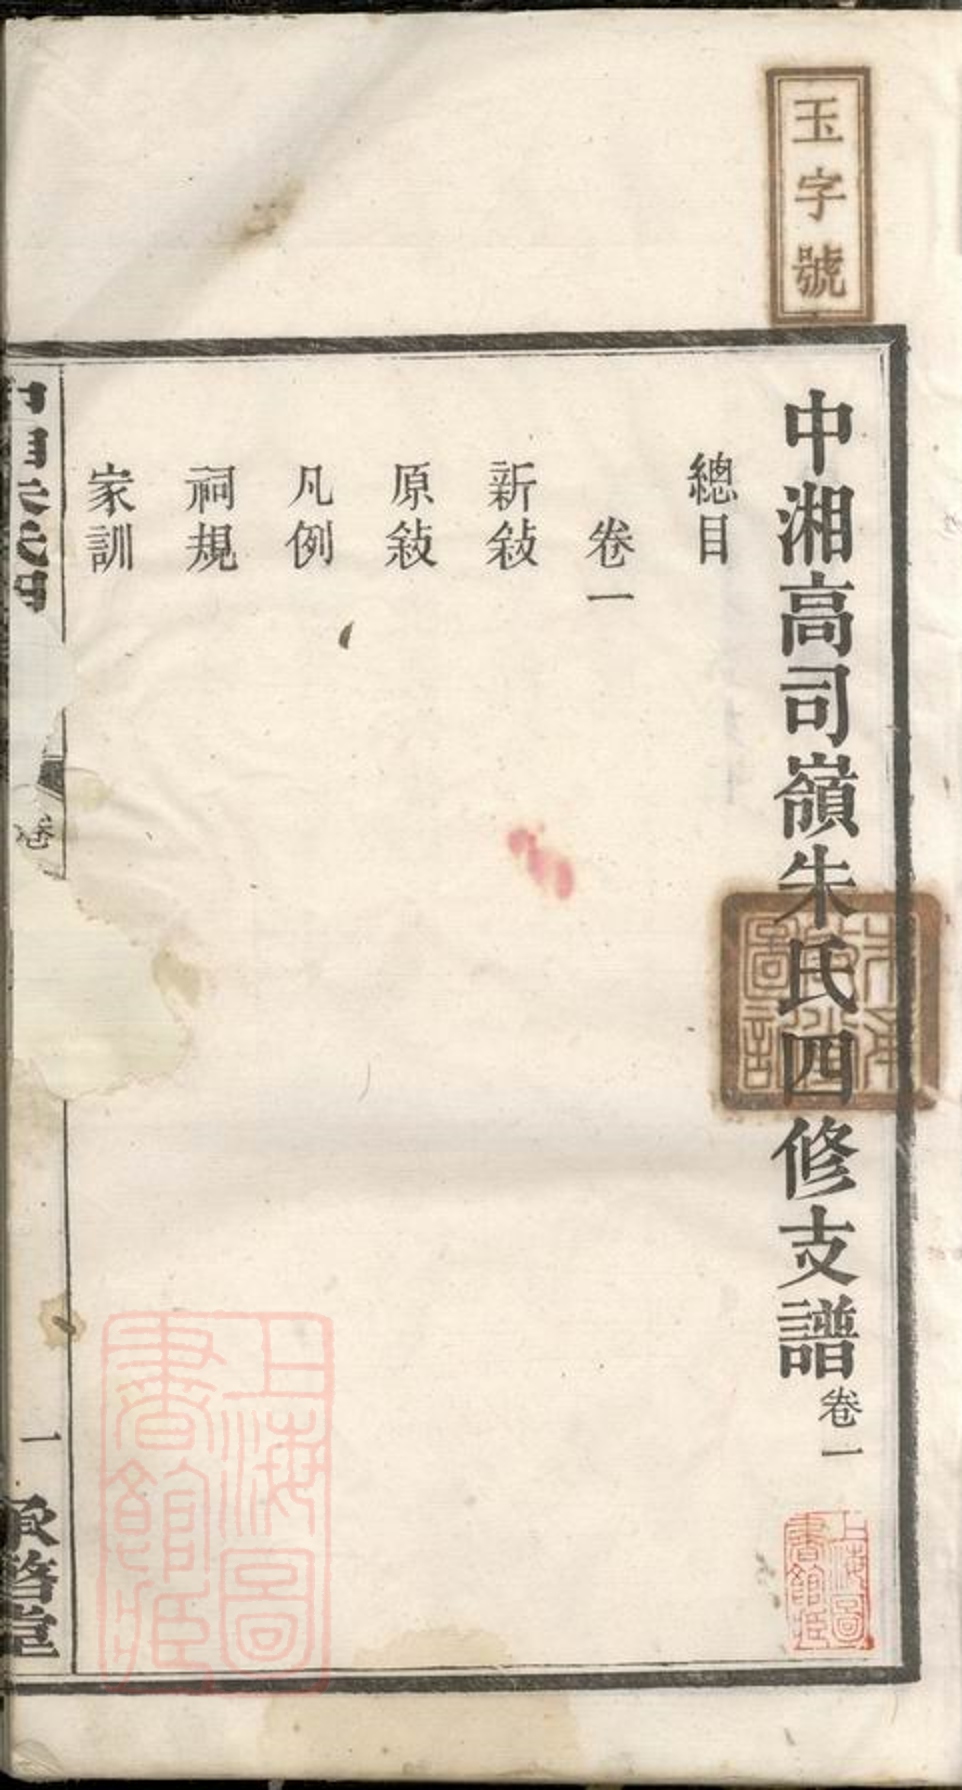 玉字號
中湘高司嶺朱氏四修支譜卷一
總目
卷一
新敍
原敍
凡例
祠規
家訓
卷
一
承啓堂
上海圖書館藏
上海圖書館藏